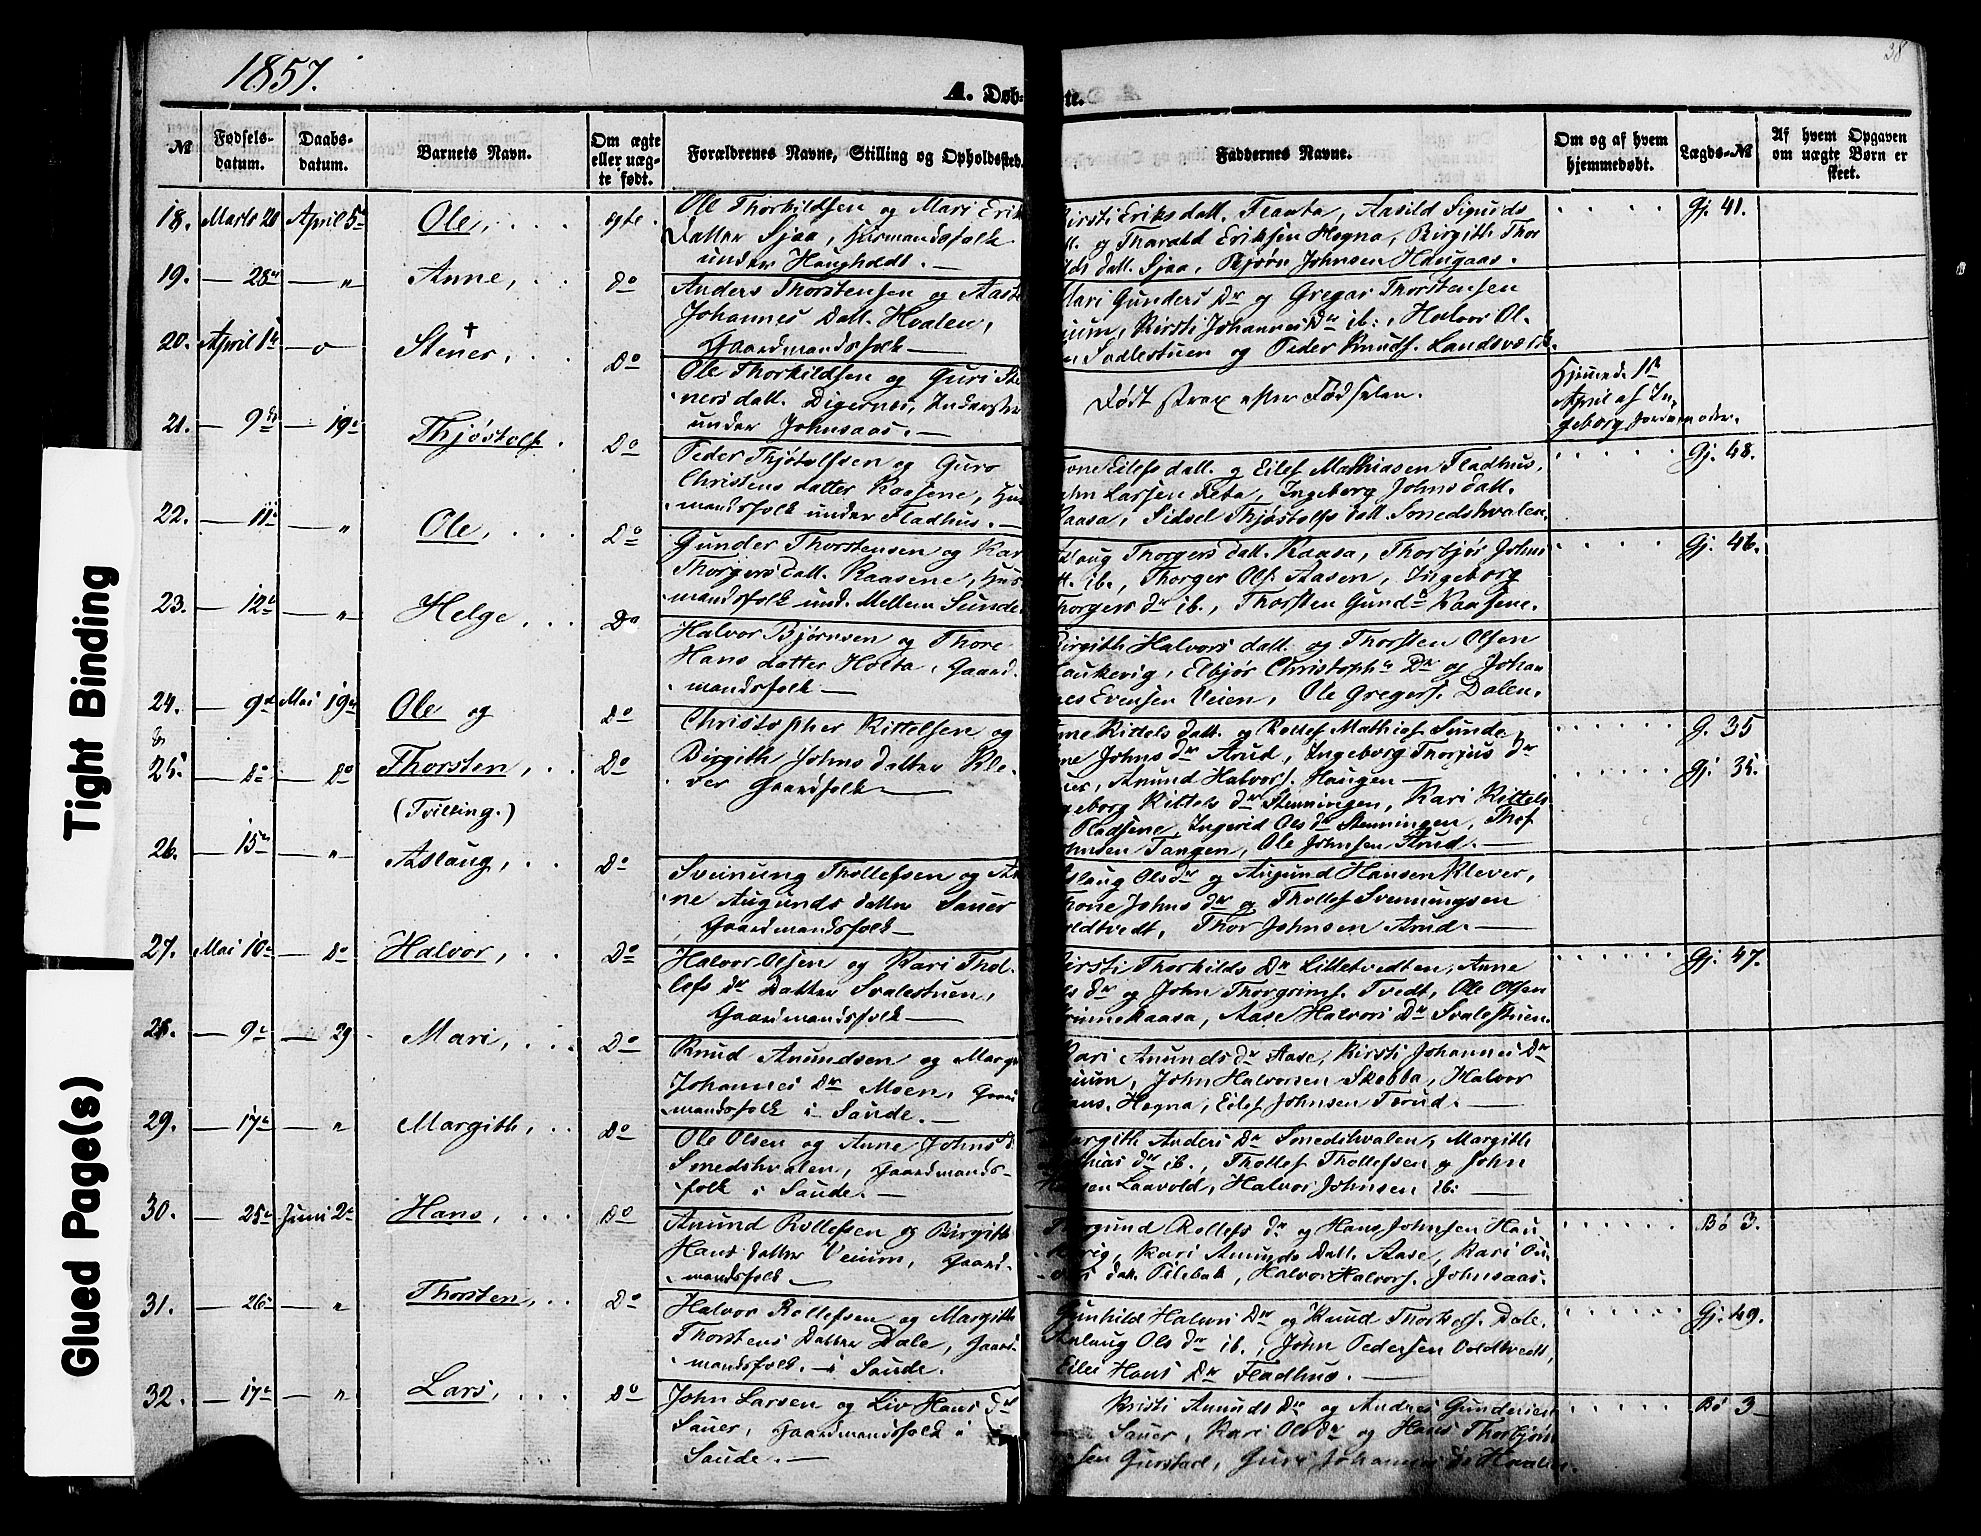 1857.
38
A. Døb-
te.
№
Fødsels-
datum.
Daabs-
datum.
Barnets Navn.
Om ægte
eller uæg-
te født.
Forældrenes Navne, Stilling og Opholdssted.
Faddernes Navne.
Om og af hvem
hjemmedøbt.
Lægds-№
Af hvem Opgaven
om uægte Børn er
skeet.
18. Marts 20 April 5te Ole, egte.
Ole Thorkildsen og Mari Erik
Datter Sjaa, Husmandsfolk
under Haugholdt. —
Kirsti Eriksdatt. Flaata, Aasild Sigurds
og Tharald Eriksen Hogna, Birgith Thor
kilds datt. Sjaa, Bjørn Johnsen Haugaas.
Gj. 41.
19. — 28de — " Anne, Do
Anders Thorstensen og Aaste
Johannes Datt. Hvalen,
Gaardmandsfolk —
Mari Gunders Dr og Gregar Thorstensen
Kirsti Johannes Dr ib:, Halvor Ol-
Svalestuen og Peder Knuds. Landsværk.
20. April 1ste — " Stener, † Do
Ole Thorkildsen og Guri Ste
nersdatt. Digernes, Inderster
under Johnsaas. —
Født strax efter Fødselen.
Hjemmed. 1ste
April af In-
geborg Jordemoder.
21. — 9de — 19de Thjøstolf. Do
Peder Thjøstolfsen og Guro
Christens datter Kaasene, Hus
mandsfolk under Fladhus. —
Tone Eilefs datt. og Eilef Mathiasen Fladhus,
John Larsen Reta, Ingeborg Johns datt.
Kaasa, Sidsel Thjøstolfs datt. Smedshvalen.
Gj. 48.
22. — 11te — " Ole, Do
Gunder Thorstensen og Kari
Thorgers Datt. Kaasene, Hus
mandsfolk und. Mellem Sunde
Aslaug Thorgers datt. Kaasa, Thorbjør Johns
ib., Thorger Ols. Aasen, Ingeborg
Thorgers dr ib., Thorsten Gund. Kaasene.
Gj. 46.
23. — 12te — " Helge, Do
Halvor Bjørnsen og Thore
Hans datter Holta, Gaard-
mandsfolk —
Birgith Halvors datt. og Thorsten Olsen
Haukevig, Elbjør Christoph. Dr og Johan
nes Evensen Veien, Ole Gregers. Dalen.
24. — 9de Mai 19de Ole og Do
Christopher Kittelsen og
Birgith Johns datter Kle-
ver Gaardfolk —
Anne Kittels datt. og Rollef Mathies. Sunde,
Johns dr Arud, Ingeborg Thorjus dr
Sauer, Anund Halvors. Haugen —
G. 35
25. — Do — Do Thorsten, Do
(Tvilling.)
Ingeborg Kittels dr Stenningen, Kari Kittels
Fladsene, Ingerid Ols dr Stenningen, Thos
Johnsen Tangen, Ole Johnsen Arud. —
Gj. 35.
26. — 15de — " Aslaug, Do
Sveinung Thollefsen og An
ne Augunds datter Sauer
Gaardmandsfolk —
Aslaug Olsdr og Augund Hansen Klever,
Thone Johns dr og Thollef Svenningsen
Oldtvedt, Thor Johnsen Arud. —
27. Mai 10de — Do Halvor, Do
Halvor Olsen og Kari Thol-
lefs dr Datter Svalestuen,
Gaardmandsfolk —
Kirsti Thorkilds Dr Litletvedten, Anne
dr og John Thorgrims. Tvedt, Ole Olsen
Kaasa, Aase Halvors Dr Svalestuen.
Gj. 47.
28. — 9de — 29 Mari, Do
Knud Anundsen og Margit
Johannes Dr Moen, Gaard
mandsfolk i Saude. —
Kari Anunds dr Aase, Kirsti Johannes Dr
Veium, John Halvorsen Skobba, Halvor
Hans. Hogna, Eilef Johnsen Terud. —
29. — 17de — " Margith, Do
Ole Olsen og Anne Johns d.
Smedshvalen, Gaardmands-
folk i Saude. —
Margith Anders Dr Smedshvalen, Margith
Mathias dr ib., Thollef Thollefsen og John
Hansen Laavold, Halvor Johnsen ib: —
30. — 25de Juni 2de Hans, Do
Anund Rollefsen og Birgith
Hans datter Veium, Gaard-
mandsfolk —
Rollefs dr og Hans Johnsen Hau
kevig, Kari Anunds Datt. Aase, Kari
datt. Pilebak, Halvor Halvors. Johnsaas.
Bø 3.
31. — 26de — " Thorsten, Do
Halvor Rollefsen og Margith
Thorstens Datter Dale, Gaard
mandsfolk. — i Saude.
Gunhild Halvors Dr og Knud Thorkels. Dale,
Aslaug Ols dr ib., John Pedersen Ooldtvedt,
Eilef Hans Dr Fladhus. —
Gj. 49.
32. — 17de — " Lars, Do
John Larsen og Liv Hans dr
Sauer, Gaardmandsfolk i
Saude. —
Kirsti Anunds dr og Anders Gundersen
Sauer, Kari Olsdr og Hans Thorbjørn
sen Gurstad, Guri Johannes dr Hvalen.
Bø 3
Tight Binding
Glued Page(s)